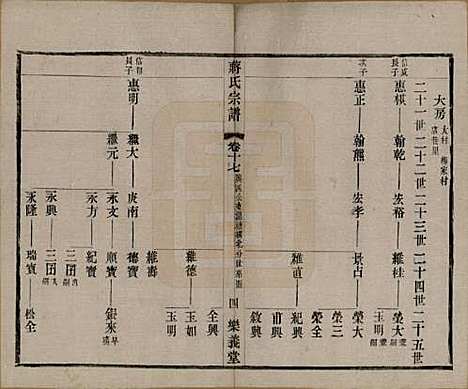 大房
大村
梅家村
二十一世二十二世二十三世二十四世二十五世
信成
長子
惠模——翰乾——宏裕——維桂——榮大
玉明
次子
惠正——翰熊——宏孝——景占——榮大
榮三
榮全
雄直——紀興
甫興
敘興
蔣氏宗譜
卷十七
四
樂義堂
全興
維德——玉如
玉明
維壽
長子
惠明——繼大——庚南——德寶
繼元——永文——順寶——銀來
永方——紀寶
三囝
永興——三囝
永隆——瑞寶——松全